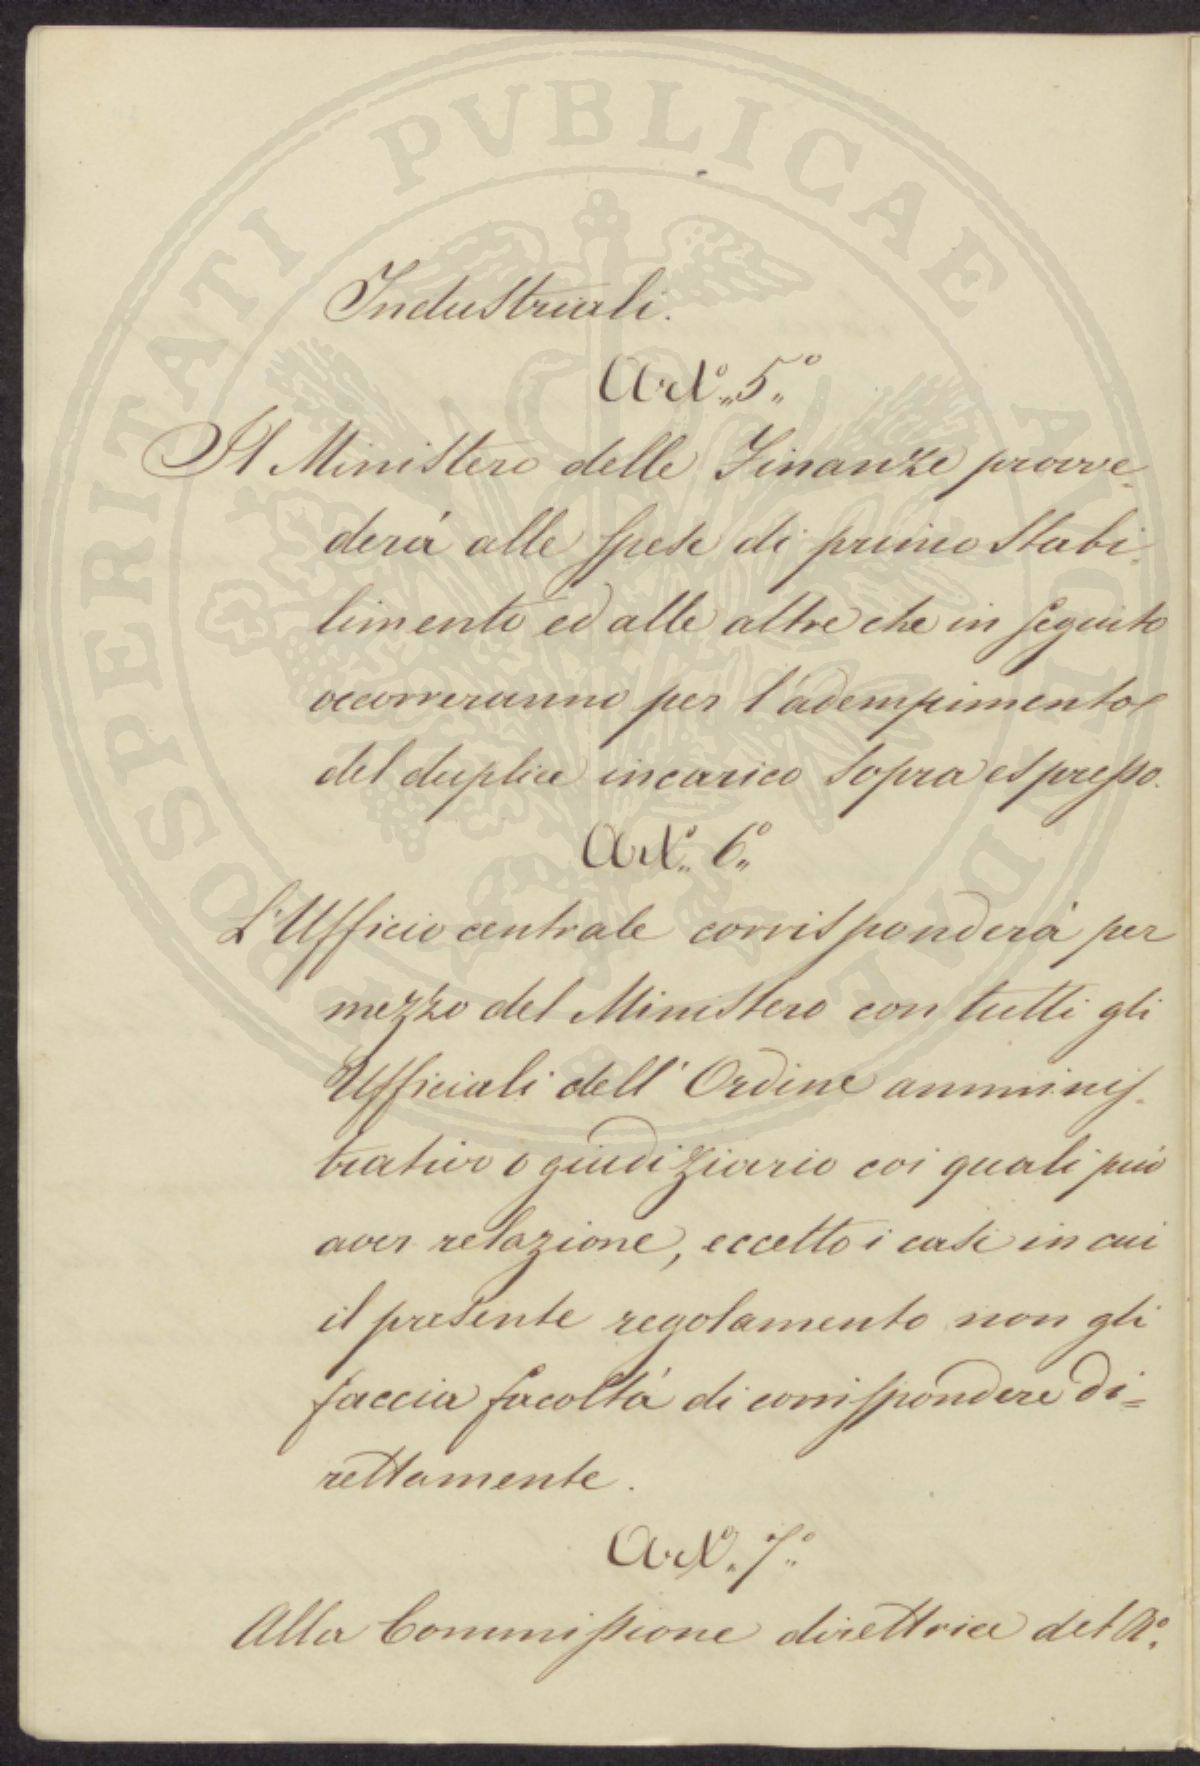 PROSPERITATI PVBLICAE AVGENDAE
Industriali.
Art.º 5.º
Il Ministero delle Finanze provve-
derà alle spese di primo stabi-
limento ed alle altre che in seguito
occorreranno per l'adempimento
del duplice incarico sopra espresso.
Art.º 6.º
L'Ufficio centrale corrisponderà per
mezzo del Ministero con tutti gli
Ufficiali dell'Ordine amminis-
trativo o giudiziario coi quali può
aver relazione, eccetto i casi in cui
il presente regolamento non gli
faccia facoltà di corrispondere di=
rettamente.
Art.º 7.º
Alla Commissione direttrice del R.º